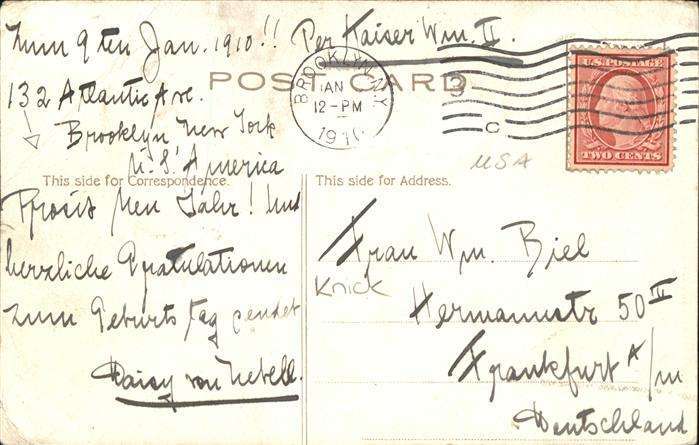 Zum 9ten Jan. 1910!! Per Kaiser Wm. II.
POST CARD
132 Atlantic Ave.
Brooklyn New York
U.S. America
This side for Correspondence.
Prosit Neu Jahr! Und
herzliche Gratulationen
zum Geburtstag sendet
Daisy von
BROOKLYN, N.Y.
JAN
12-PM
1910
3
C
U.S. POSTAGE
TWO CENTS
USA
This side for Address.
Frau Wm. Biel
Knick
Hermannstr 50 II
Frankfurt A/m
Deutschland